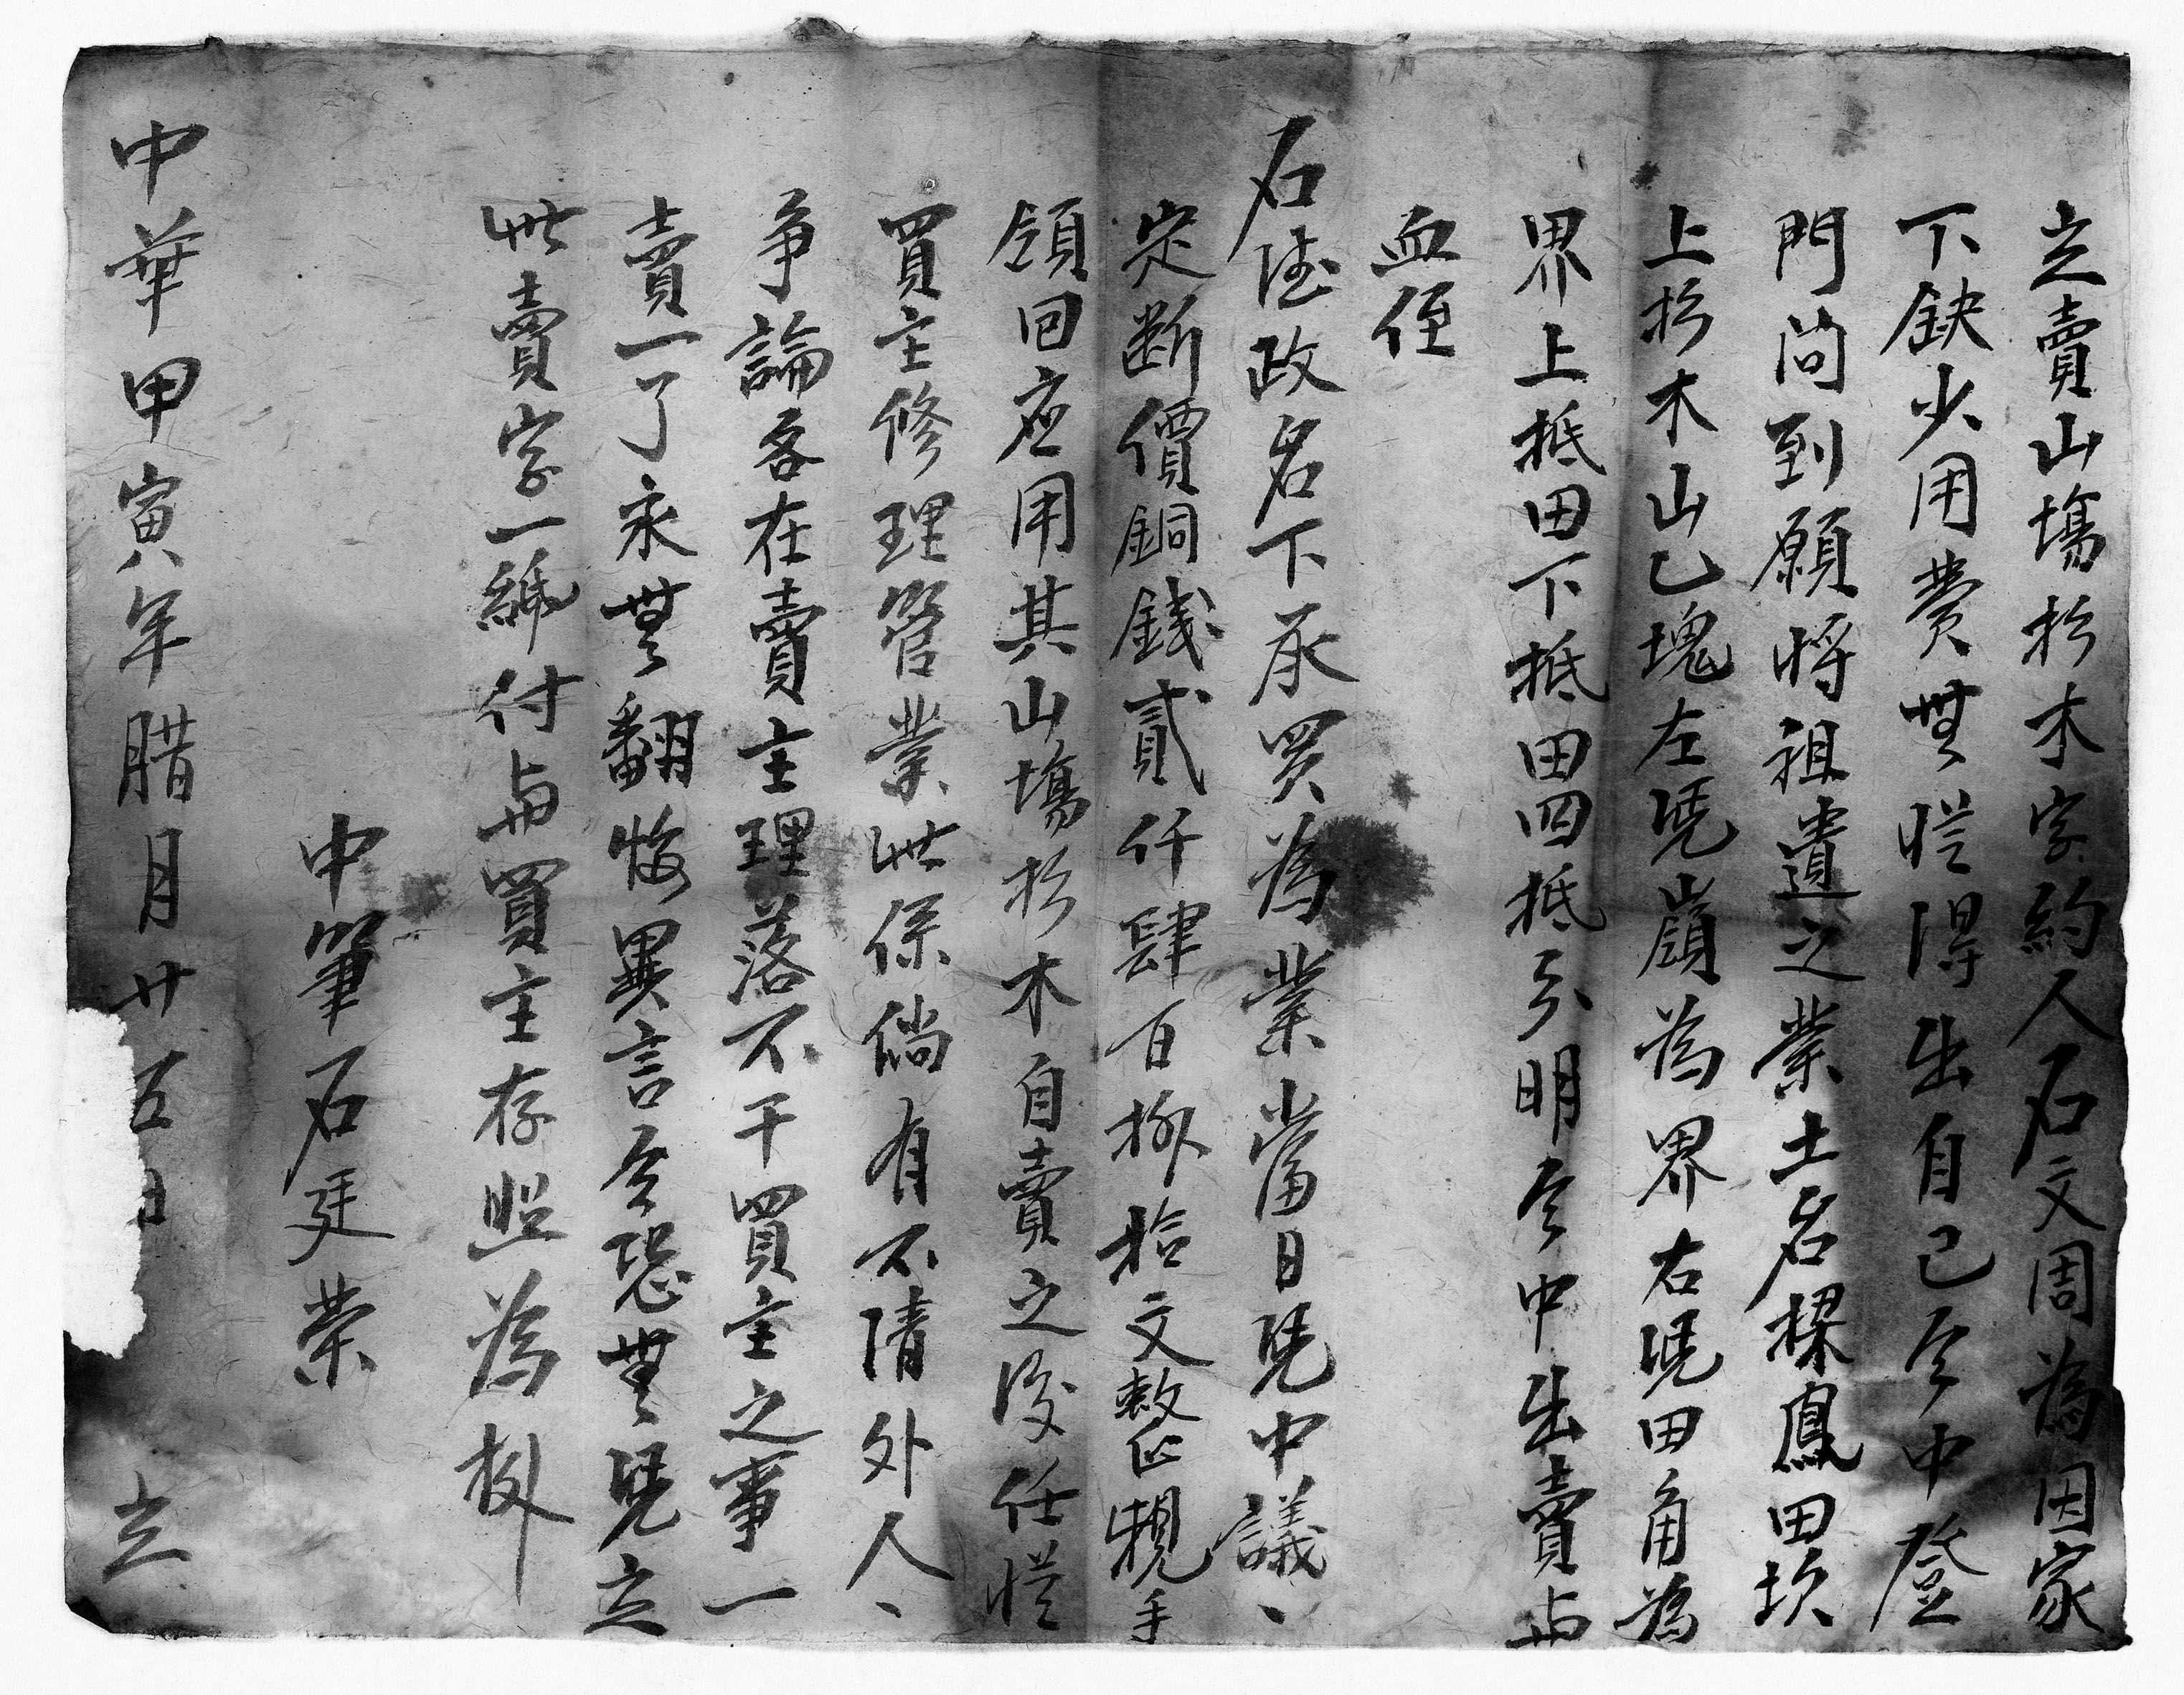 立賣山塲杉木字約人石文周為因家
下缺少用費無從得出自己今中登
門问到願將祖遺之業土名樑鳳田坎
上杉木山乙塊左凴嶺為界右凴田角為
界上抵田下抵田四抵分明今中出賣与
血侄
石陸政名下承買為業當日凴中議
定断價銅錢貳仟肆百柳拾文整正親手
領回应用其山塲杉木自賣之後任從
買主修理管業此係倘有不清外人
争論各在賣主理落不干買主之事一
賣一了永無翻悔異言今恐無凴立
此賣字一紙付与買主存照為㨿
中筆石廷荣
中華甲寅年腊月廿五日 立